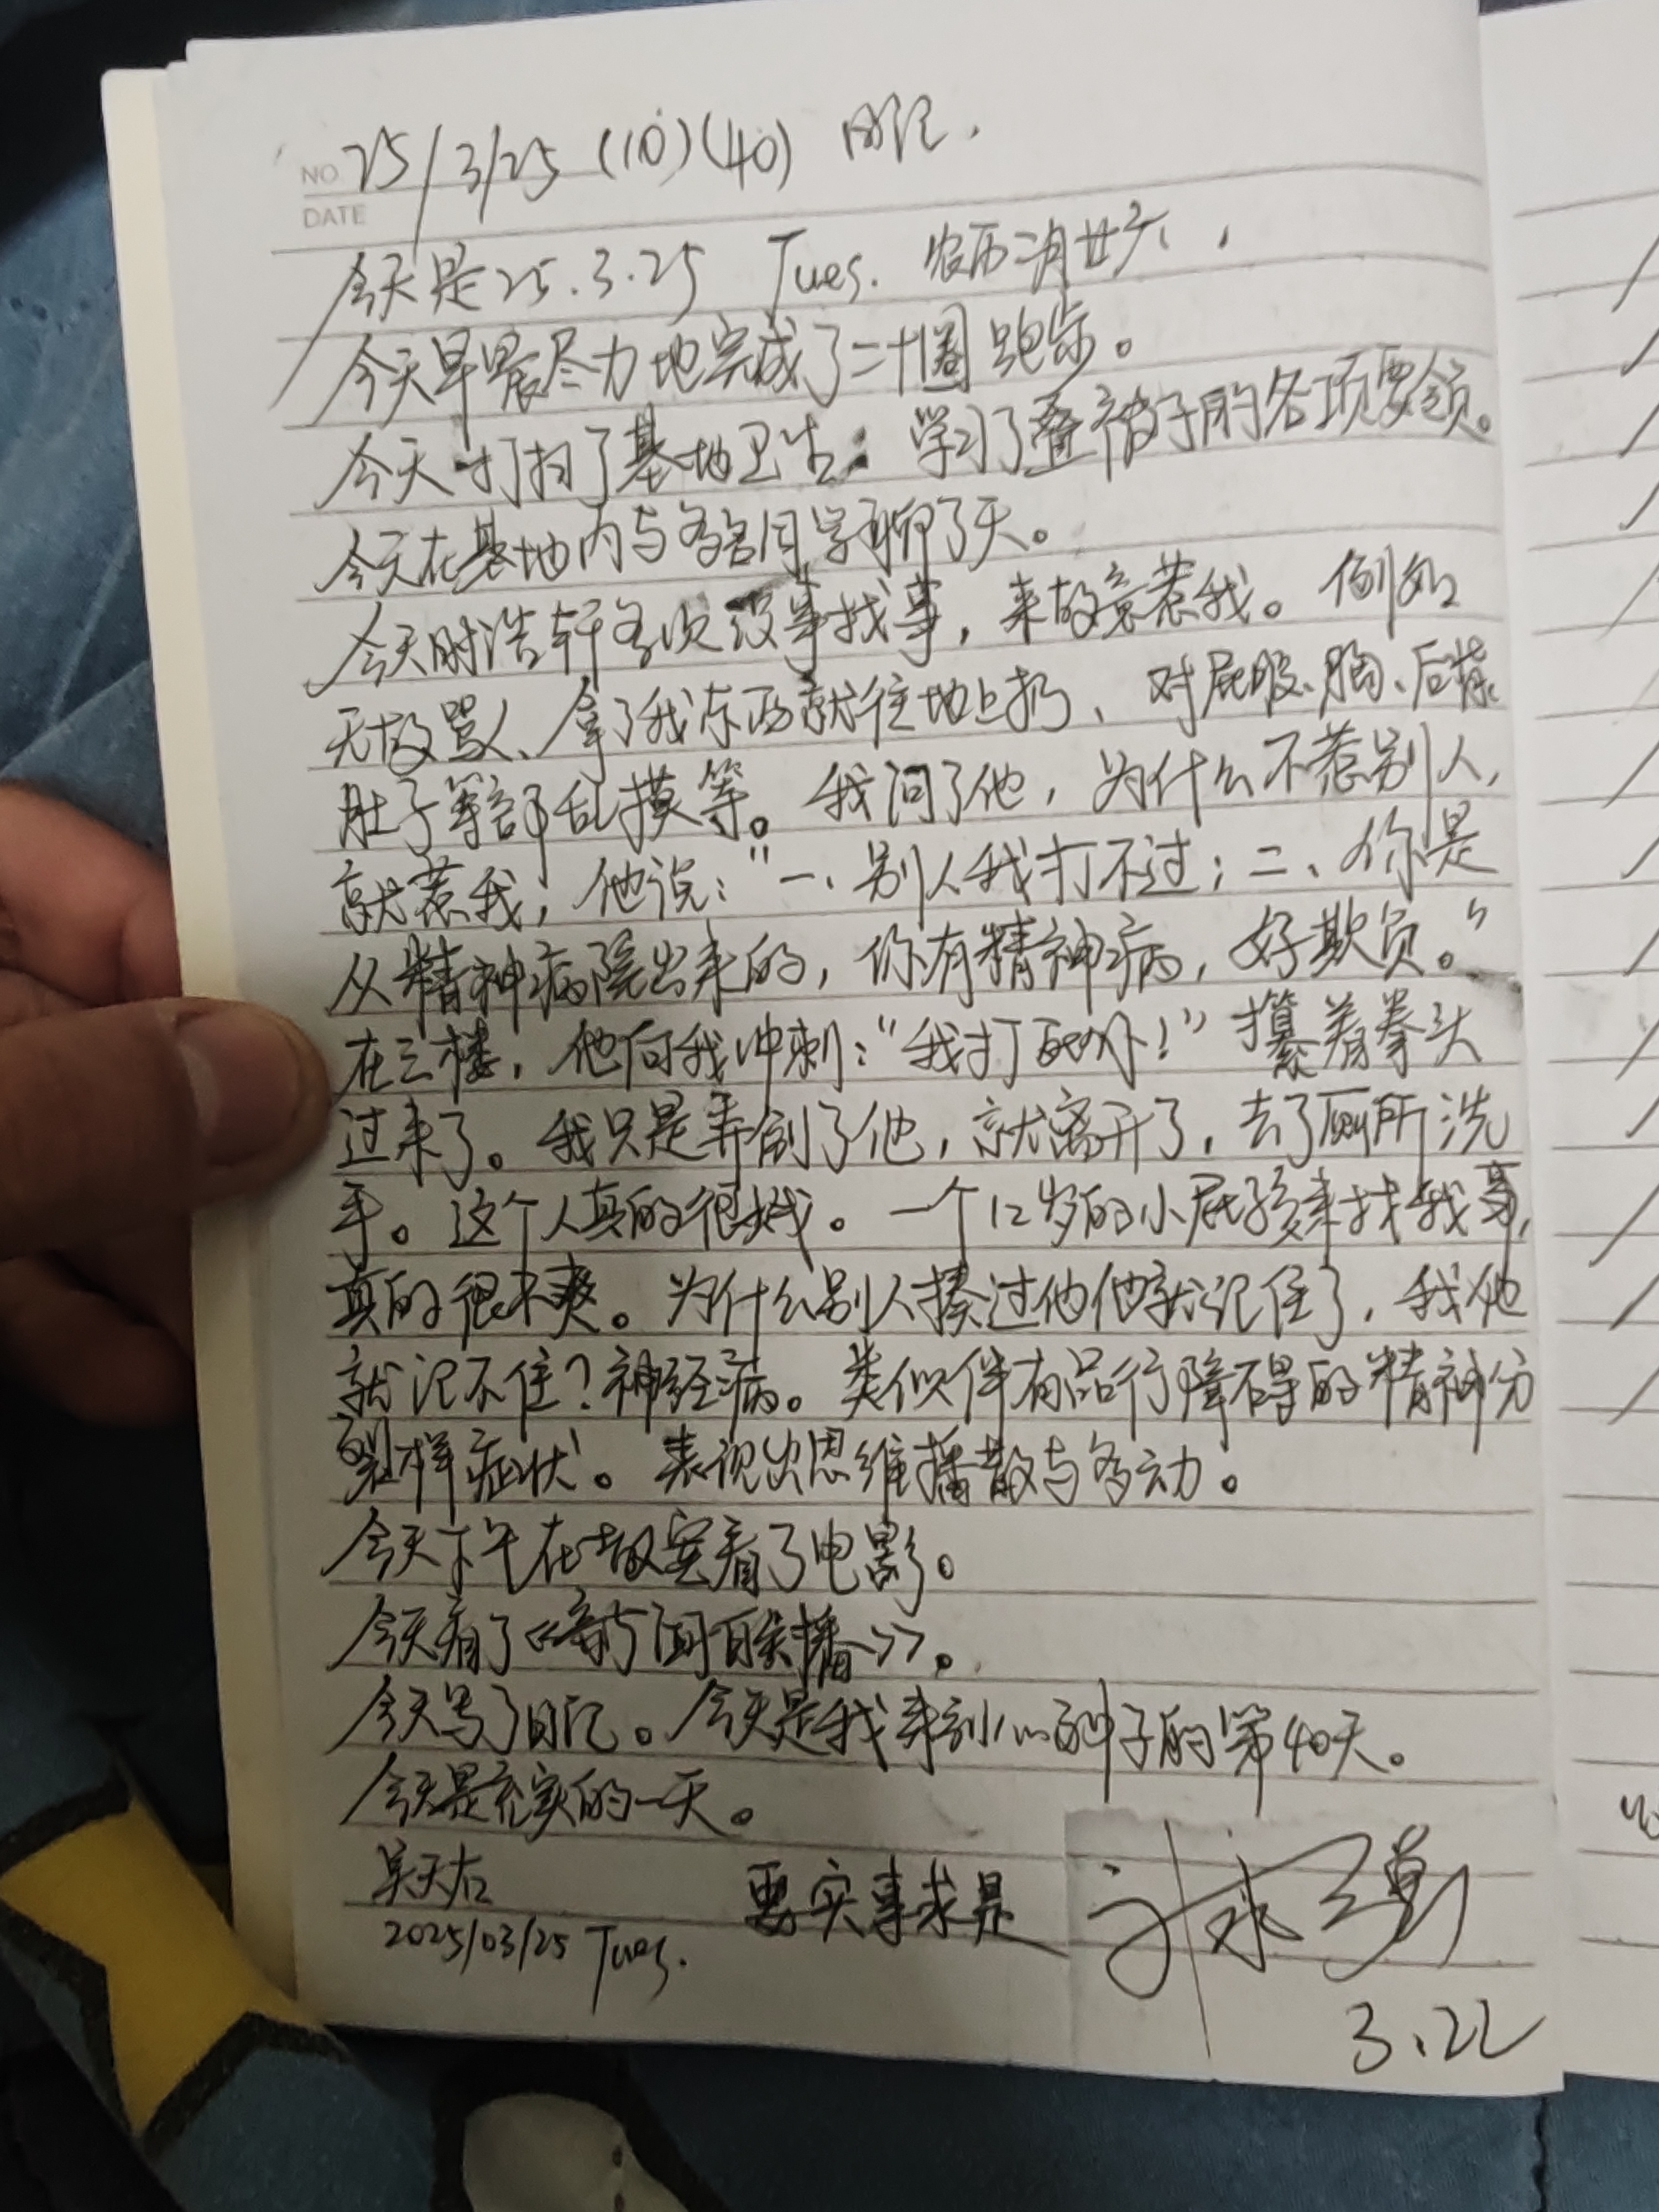 NO 25/3/25 (10)(40) 日记.
DATE
今天是25.3.25 Tues. 农历二月廿六,
今天早晨尽力地完成了二十圈跑步。
今天打扫了基地卫生；学习了叠被子的各项要领。
今天在基地内与多名同学聊了天。
今天时浩轩多次没事找事，来故意惹我。例如
无故骂人、拿了我东西就往地上扔、对屁股、胸、后背、
肚子等部乱摸等。我问了他，为什么不惹别人，
就惹我，他说：“一、别人我打不过；二、你是
从精神病院出来的，你有精神病，好欺负。”
在三楼，他向我冲刺：“我打死你！”攥着拳头
过来了。我只是弄倒了他，就离开了，去了厕所洗
手。这个人真的很贱。一个12岁的小屁孩来找我事，
真的很不爽。为什么别人揍过他他就记住了，我他
就记不住？神经病。类似伴有品行障碍的精神分
裂样症状。表现出思维播散与多动。
今天下午在教室看了电影。
今天看了《新闻联播》。
今天写了日记。今天是我来到小种子的第40天。
今天是充实的一天。
吴天右 要实事求是
2025/03/25 Tues.
3.22